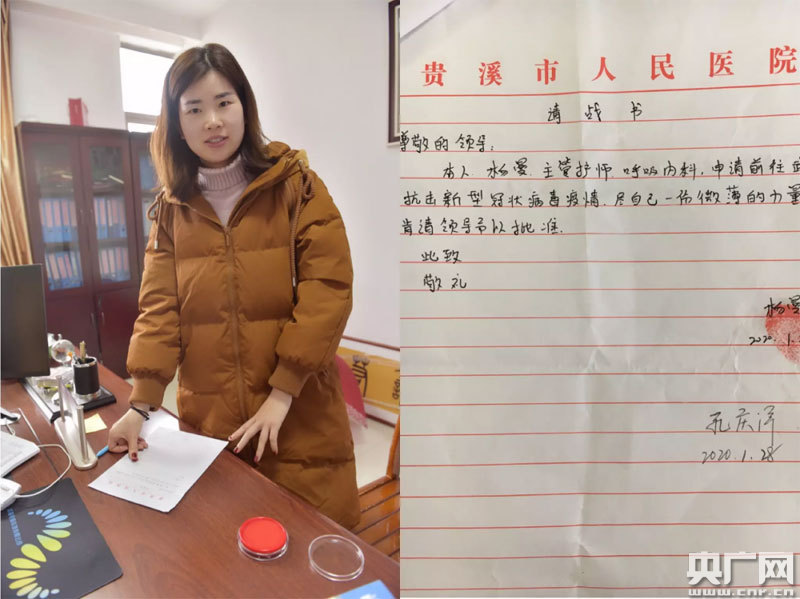 贵溪市人民医院
请战书
尊敬的领导:
本人杨曼,主管护师,呼吸内科,申请前往
抗击新型冠状病毒疫情,尽自己一份微薄的力量
肯请领导予以批准.
此致
敬礼
杨曼
2020.1.2
孔庆泽
2020.1.28
央广网
www.cnr.cn